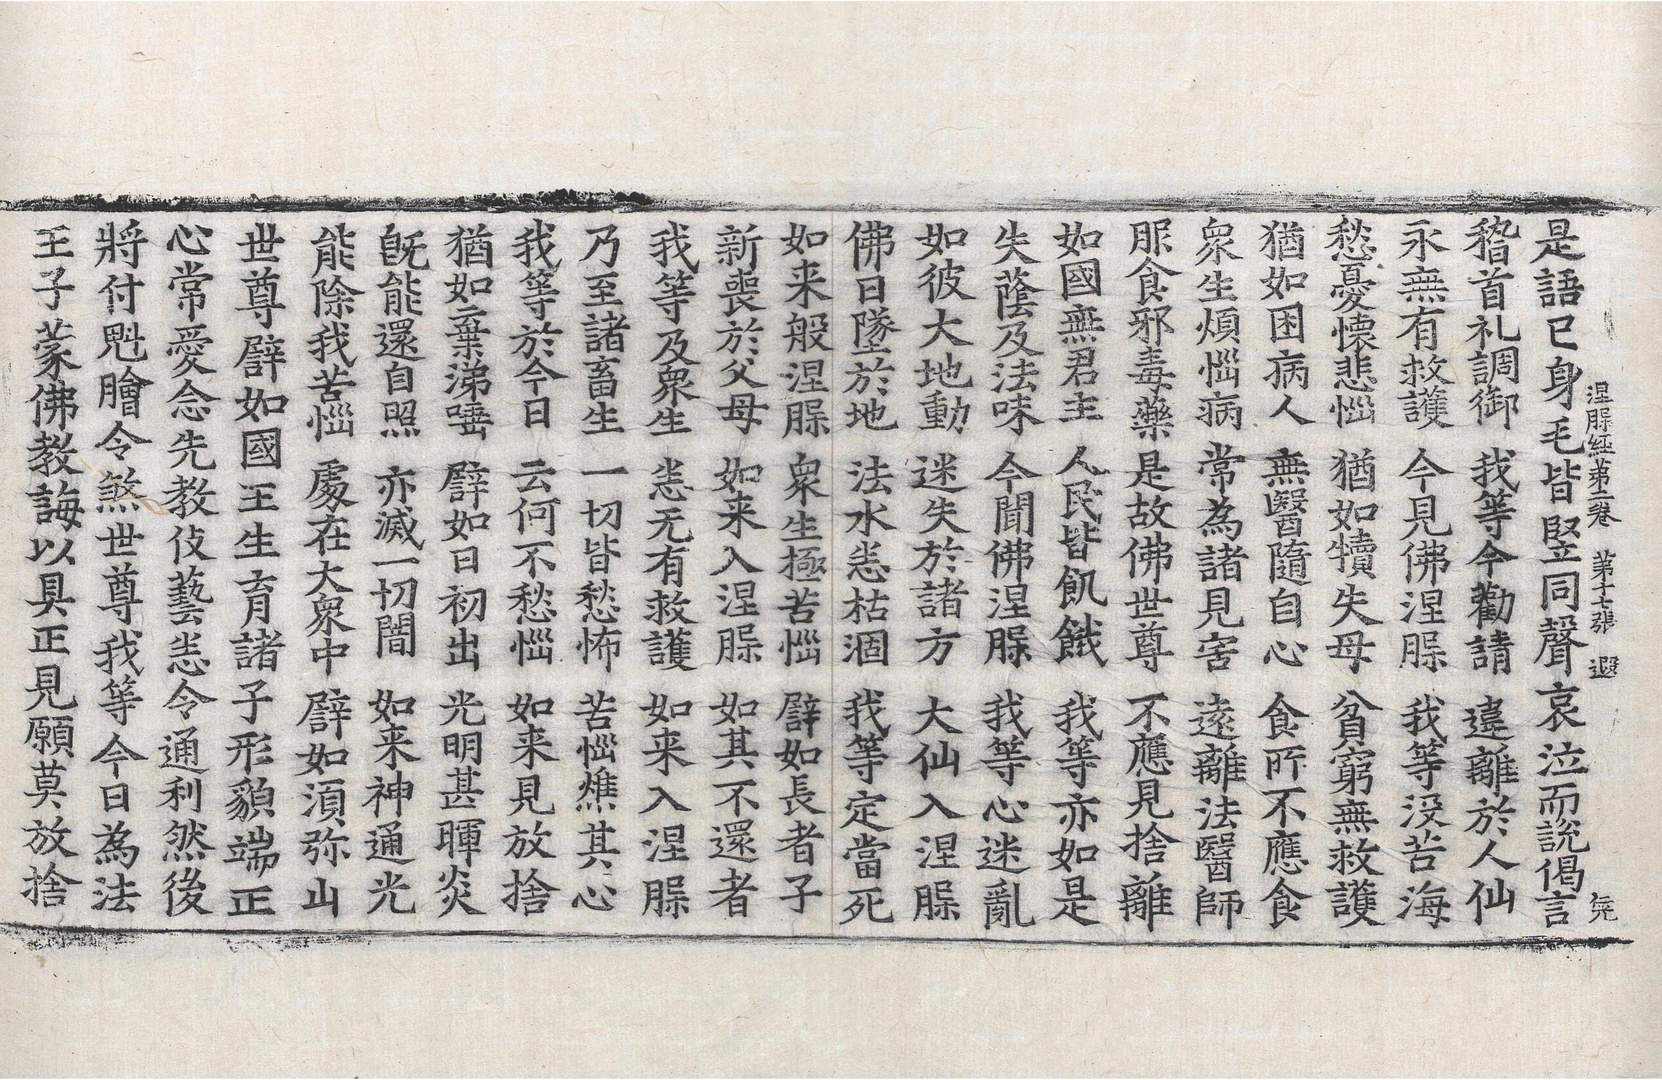 涅槃經第二卷 第十七張 遐
是語已身毛皆竪同聲哀泣而說偈言
稽首礼調御 我等今勸請 違離於人仙
永無有救護 今見佛涅槃 我等没苦海
愁憂懷悲惱 猶如犢失母 貧窮無救護
猶如困病人 無醫隨自心 食所不應食
衆生煩惱病 常為諸見害 遠離法醫師
服食邪毒藥 是故佛世尊 不應見捨離
如國無君主 人民皆飢餓 我等亦如是
失蔭及法味 今聞佛涅槃 我等心迷亂
如彼大地動 迷失於諸方 大仙入涅槃
佛日墜於地 法水悉枯涸 我等定當死
如来般涅槃 衆生極苦惱 譬如長者子
新喪於父母 如来入涅槃 如其不還者
我等及衆生 悉无有救護 如来入涅槃
乃至諸畜生 一切皆愁怖 苦惱燋其心
我等於今日 云何不愁惱 如来見放捨
猶如棄涕唾 譬如日初出 光明甚暉炎
旣能還自照 亦滅一切闇 如来神通光
能除我苦惱 處在大衆中 譬如湏弥山
世尊譬如國王生育諸子形貌端正
心常愛念先教伎藝悉令通利然後
將付魁膾令煞世尊我等今日為法
王子蒙佛教誨以具正見願莫放捨